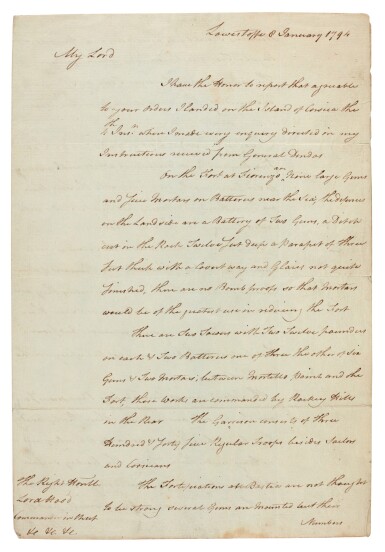 Lowestoffe 8 January 1794
My Lord
I have the Honor to report that agreeable
to your orders I landed on the Island of Corsica the
4th Inst. when I made every enquiry directed in my
Instructions received from General Dundas
On the Fort at Fiorenzo are large Guns
and five Mortars on Batteries near the Sea, the defences
on the Landside are a Battery of Two Guns, a Ditch
cut in the Rock Twelve feet deep a parapet of three
feet thick with a Covert way and Glacis not quite
finished, there are no Bomb proofs so that Mortars
would be of the greatest use in reducing the Fort
There are Two Towers with Two Twelve pounders
on each & Two Batteries one of three the other of Six
Guns & Two Mortars, between Mortella point and the
Fort, these works are commanded by Rocky Hills
in the Rear The Garrison consists of three
Hundred & Forty five Regular Troops besides Sailors
and Corsicans
The Fortifications at Bastia are not thought
to be strong several Guns are mounted but their
Numbers
The Right Honble
Lord Hood
Commander in Chief
&c &c &c.